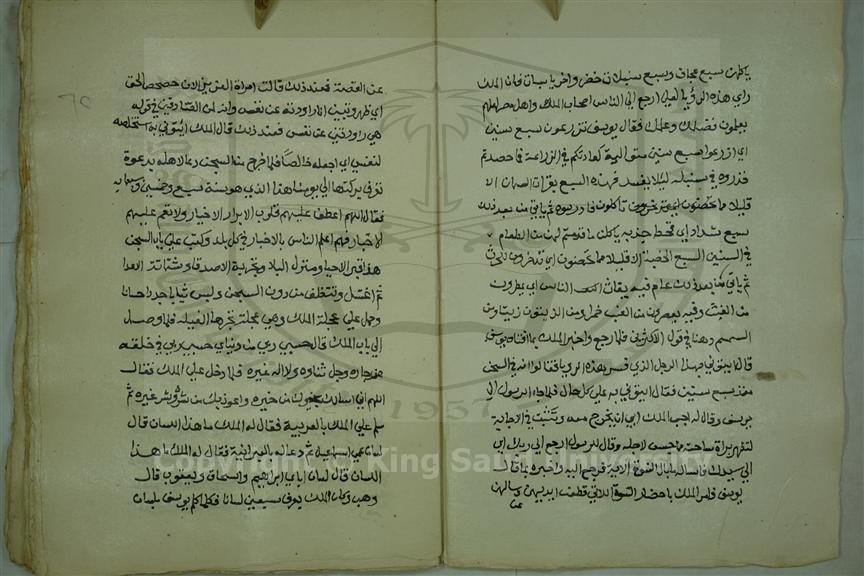 ياكلهن سبع عجاف وسبع سنبلات خضر واخر يابسات فان الملك
راي هذه الرؤيا لعلي ارجع الي الناس اصحاب الملك واهل مصر لعلهم
يعلمون فضلك وعلمك فقال يوسف تزرعون سبع سنين
اي ازرعوا سبع سنين متوالية كعادتكم في الزراعة فما حصدتم
فذروه في سنبله ليلا يفسد فهذه السبع بقرات السمان الا
قليلا مما تاكلون ثم ياتي من بعد ذلك
سبع شداد اي قحط جدبه ياكلن ما قدمتم لهن من الطعام
في السنين السبع الخصبة الا قليلا مما تحصنون اي تدخرون
ثم ياتي من بعد ذلك عام فيه يغاث الناس اي يمطرون
من الغيث وفيه يعصرون من العنب خمرا ومن الزيتون زيتا ومن
السمسم دهنا في قول الاكثرين فلما رجع واخبر الملك بما افتاه يوسف
قال ايتوني بهذا الرجل الذي فسر هذه الرويا فقالوا انه في السجن
منذ سبع سنين فقال ايتوني به علي كل حال فلما جاء الرسول الي
يوسف وقال له اجب الملك ابي ان يخرج معه وتثبت في الاجابة
لتظهر براة ساحته وقال للرسول ارجع الي ربك اي
الي سيدك فاساله ما بال النسوة الاية فرجع اليه واخبره بما قال
يوسف فامر الملك باحضار النسوة اللاتي قطعن ايديهن وسالهن
عن
عن القصة فعند ذلك قالت امراة العزيز الان حصحص الحق
اي ظهر وتبين انا راودته عن نفسه وانه لمن الصادقين في قوله
هي راودتني عن نفسي فعند ذلك قال الملك ايتوني به استخلصه
لنفسي اي اجعله خالصا فلما خرج من السجن دعا لاهله بدعوة
تعرف بركتها الي يومنا هذا الذي هو سنة سبع وخمسين
فقال اللهم اعطف عليهم قلوب الابرار الاخيار ولا تعم عليهم
الاخبار فهم اعلم الناس بالاخبار في كل بلد وكتب علي باب السجن
هذا قبر الاحيا ومنزل البلا وتجربة الاصدقا وشماتة الاعدا
ثم اغتسل وتنظف من درن السجن ولبس ثيابا جددا حسانا
وحمل علي عجلة الملك وهي عجلة تجرها الفيلة فلما وصل
الي باب الملك قال حسبي ربي من دنياي حسبي ربي من خلقه
عز جاره وجل ثناوه ولا اله غيره فلما دخل علي الملك فقال
اللهم اني اسالك بخيرك من خيره واعوذ بك من شره وشر غيره ثم
سلم علي الملك بالعربية فقال له الملك ما هذا اللسان قال
لسان عمي اسماعيل ثم دعا له بالعبرانية فقال له الملك ما هذا
اللسان قال لسان اباي ابراهيم واسحاق ويعقوب قال
وهب وكان الملك يعرف سبعين لسانا فكلما كلم يوسف بلسان
1957
Copyright © King Saud University